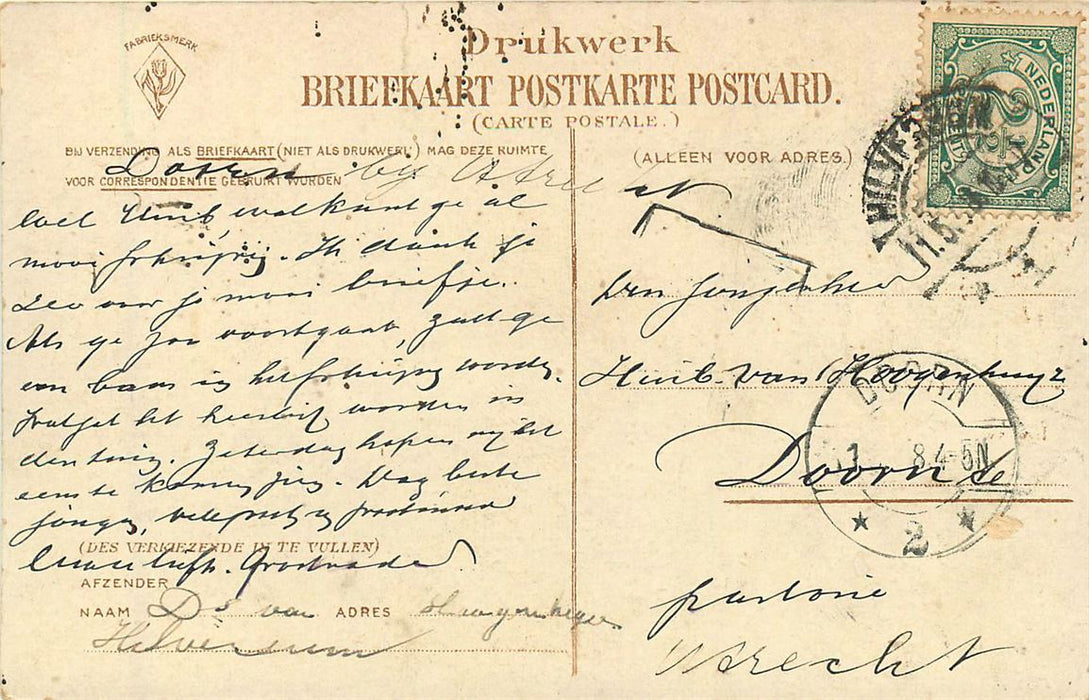 FABRIEKSMERK
Drukwerk
BRIEFKAART POSTKARTE POSTCARD.
(CARTE POSTALE.)
BIJ VERZENDING ALS BRIEFKAART (NIET ALS DRUKWERK) MAG DEZE RUIMTE
VOOR CORRESPONDENTIE GEBRUIKT WORDEN
(ALLEEN VOOR ADRES.)
NEDERLAND
2½
HILVERSUM
11.5.
Doorn by Utrecht
wel Huib wat kunt ge al
mooi . Ik dank je
zeer voor je mooi briefje.
Als ge zoo voortgaat, zult ge
een baas in worden.
het worden in
den tuin. Zaterdag hopen wij
te komen zien. Dag beste
jongen, en
(DES VERKIEZENDE IN TE VULLEN)
Grootvader.
AFZENDER
NAAM Ds van ADRES Hoogenhuyze
Hilversum
Den Jongeheer
Huib van Hoogenhuyze
Doorn
DOORN
1 8.4-5N
2
pastorie
Utrecht